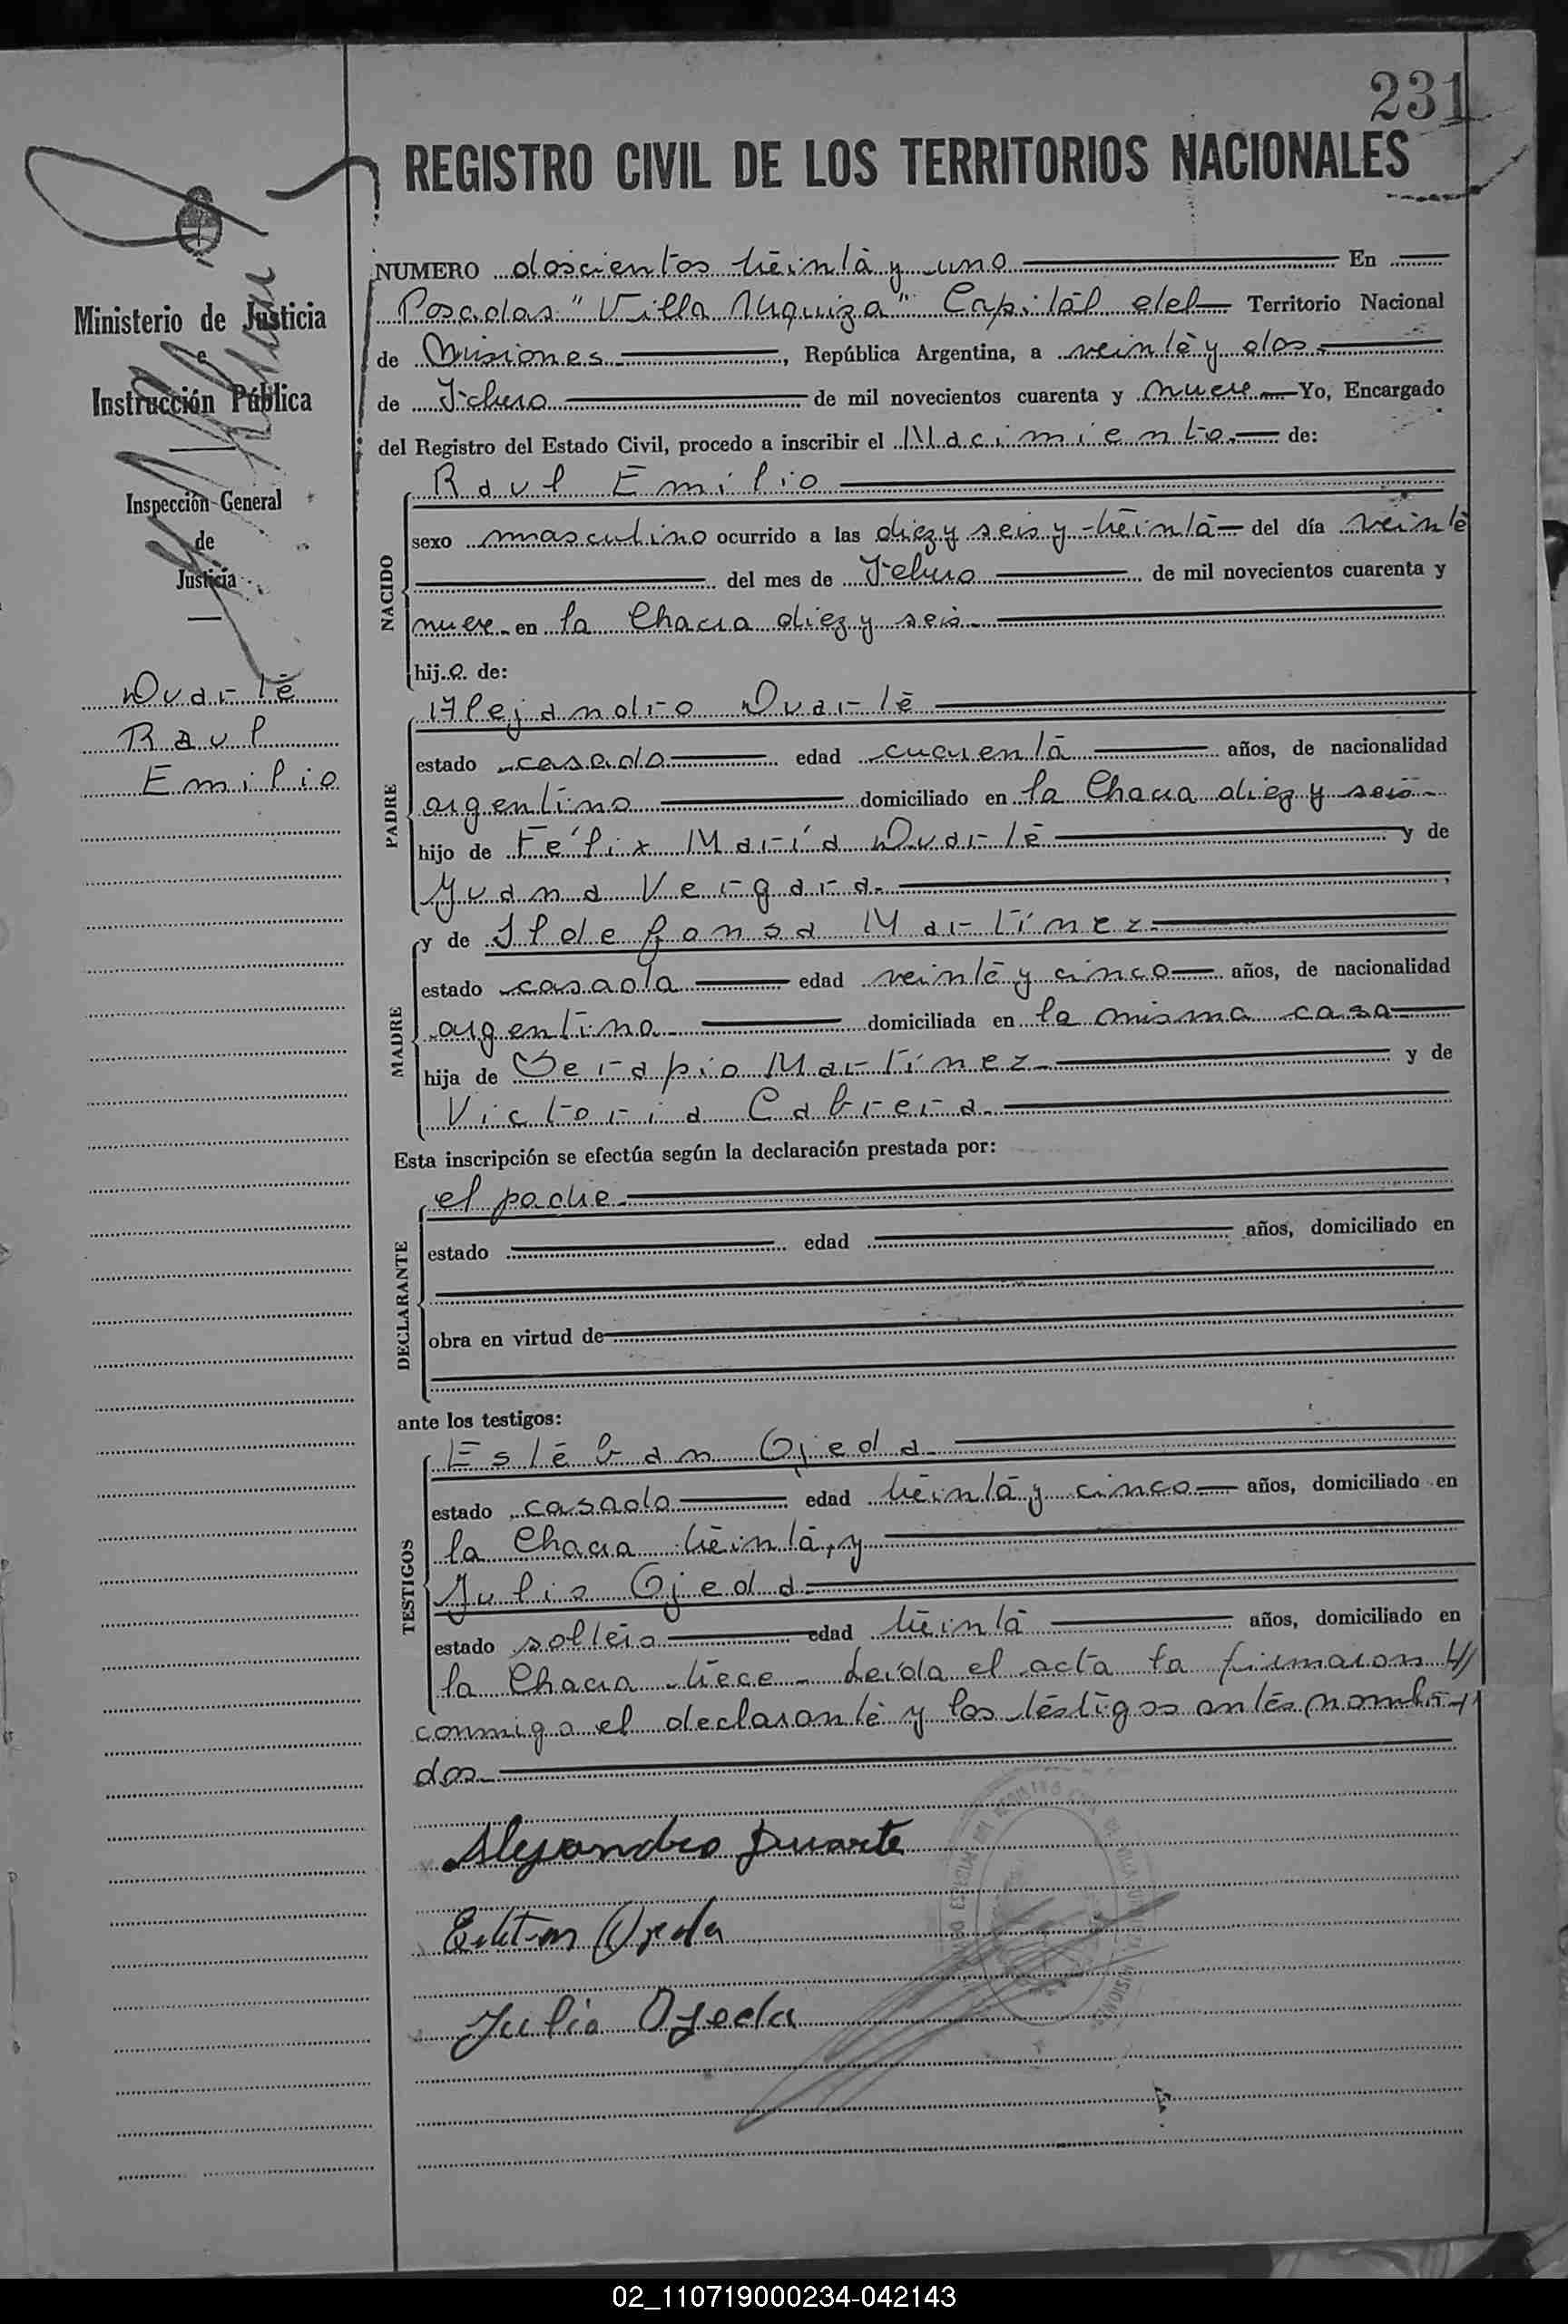 231
REGISTRO CIVIL DE LOS TERRITORIOS NACIONALES
NUMERO doscientos treinta y uno En
Posadas "Villa Urquiza" Capital del Territorio Nacional
de Misiones, República Argentina, a veinte y dos
de Febrero de mil novecientos cuarenta y nueve Yo, Encargado
del Registro del Estado Civil, procedo a inscribir el Nacimiento de:
NACIDO
Raul Emilio
sexo masculino ocurrido a las diez y seis y treinta del día veinte
del mes de Febrero de mil novecientos cuarenta y
nueve en la Chacra diez y seis
hijo de:
PADRE
Alejandro Duarte
estado casado edad cuarenta años, de nacionalidad
argentino domiciliado en la Chacra diez y seis
hijo de Félix María Duarte y de
Juana Vergara
MADRE
y de Ildefonsa Martínez
estado casada edad veinte y cinco años, de nacionalidad
argentina domiciliada en la misma casa
hija de Serapio Martínez y de
Victoria Cabrera
Esta inscripción se efectúa según la declaración prestada por:
DECLARANTE
el padre
estado edad años, domiciliado en
obra en virtud de
ante los testigos:
TESTIGOS
Esteban Ojeda
estado casado edad treinta y cinco años, domiciliado en
la Chacra treinta, y
Julio Ojeda
estado soltero edad treinta años, domiciliado en
la Chacra trece - Leída el acta la firmaron
conmigo el declarante y los testigos antes nombra
dos
Alejandro Duarte
Esteban Ojeda
Julio Ojeda
Ministerio de Justicia
e
Instrucción Pública
Inspección General
de
Justicia
Duarte
Raul
Emilio
02_110719000234-042143